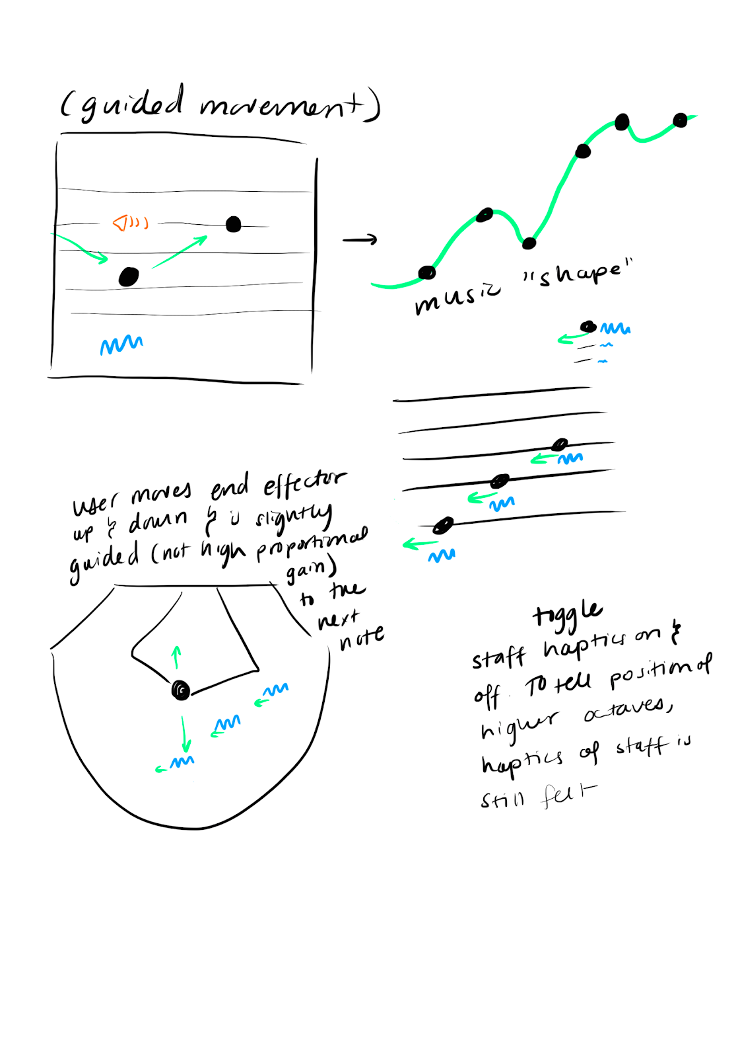 (guided movement)
music "shape"
user moves end effector
up & down & is slightly
guided (not high proportional
gain)
to the
next
note
toggle
staff haptics on &
off. To tell position of
higher octaves,
haptics of staff is
still felt